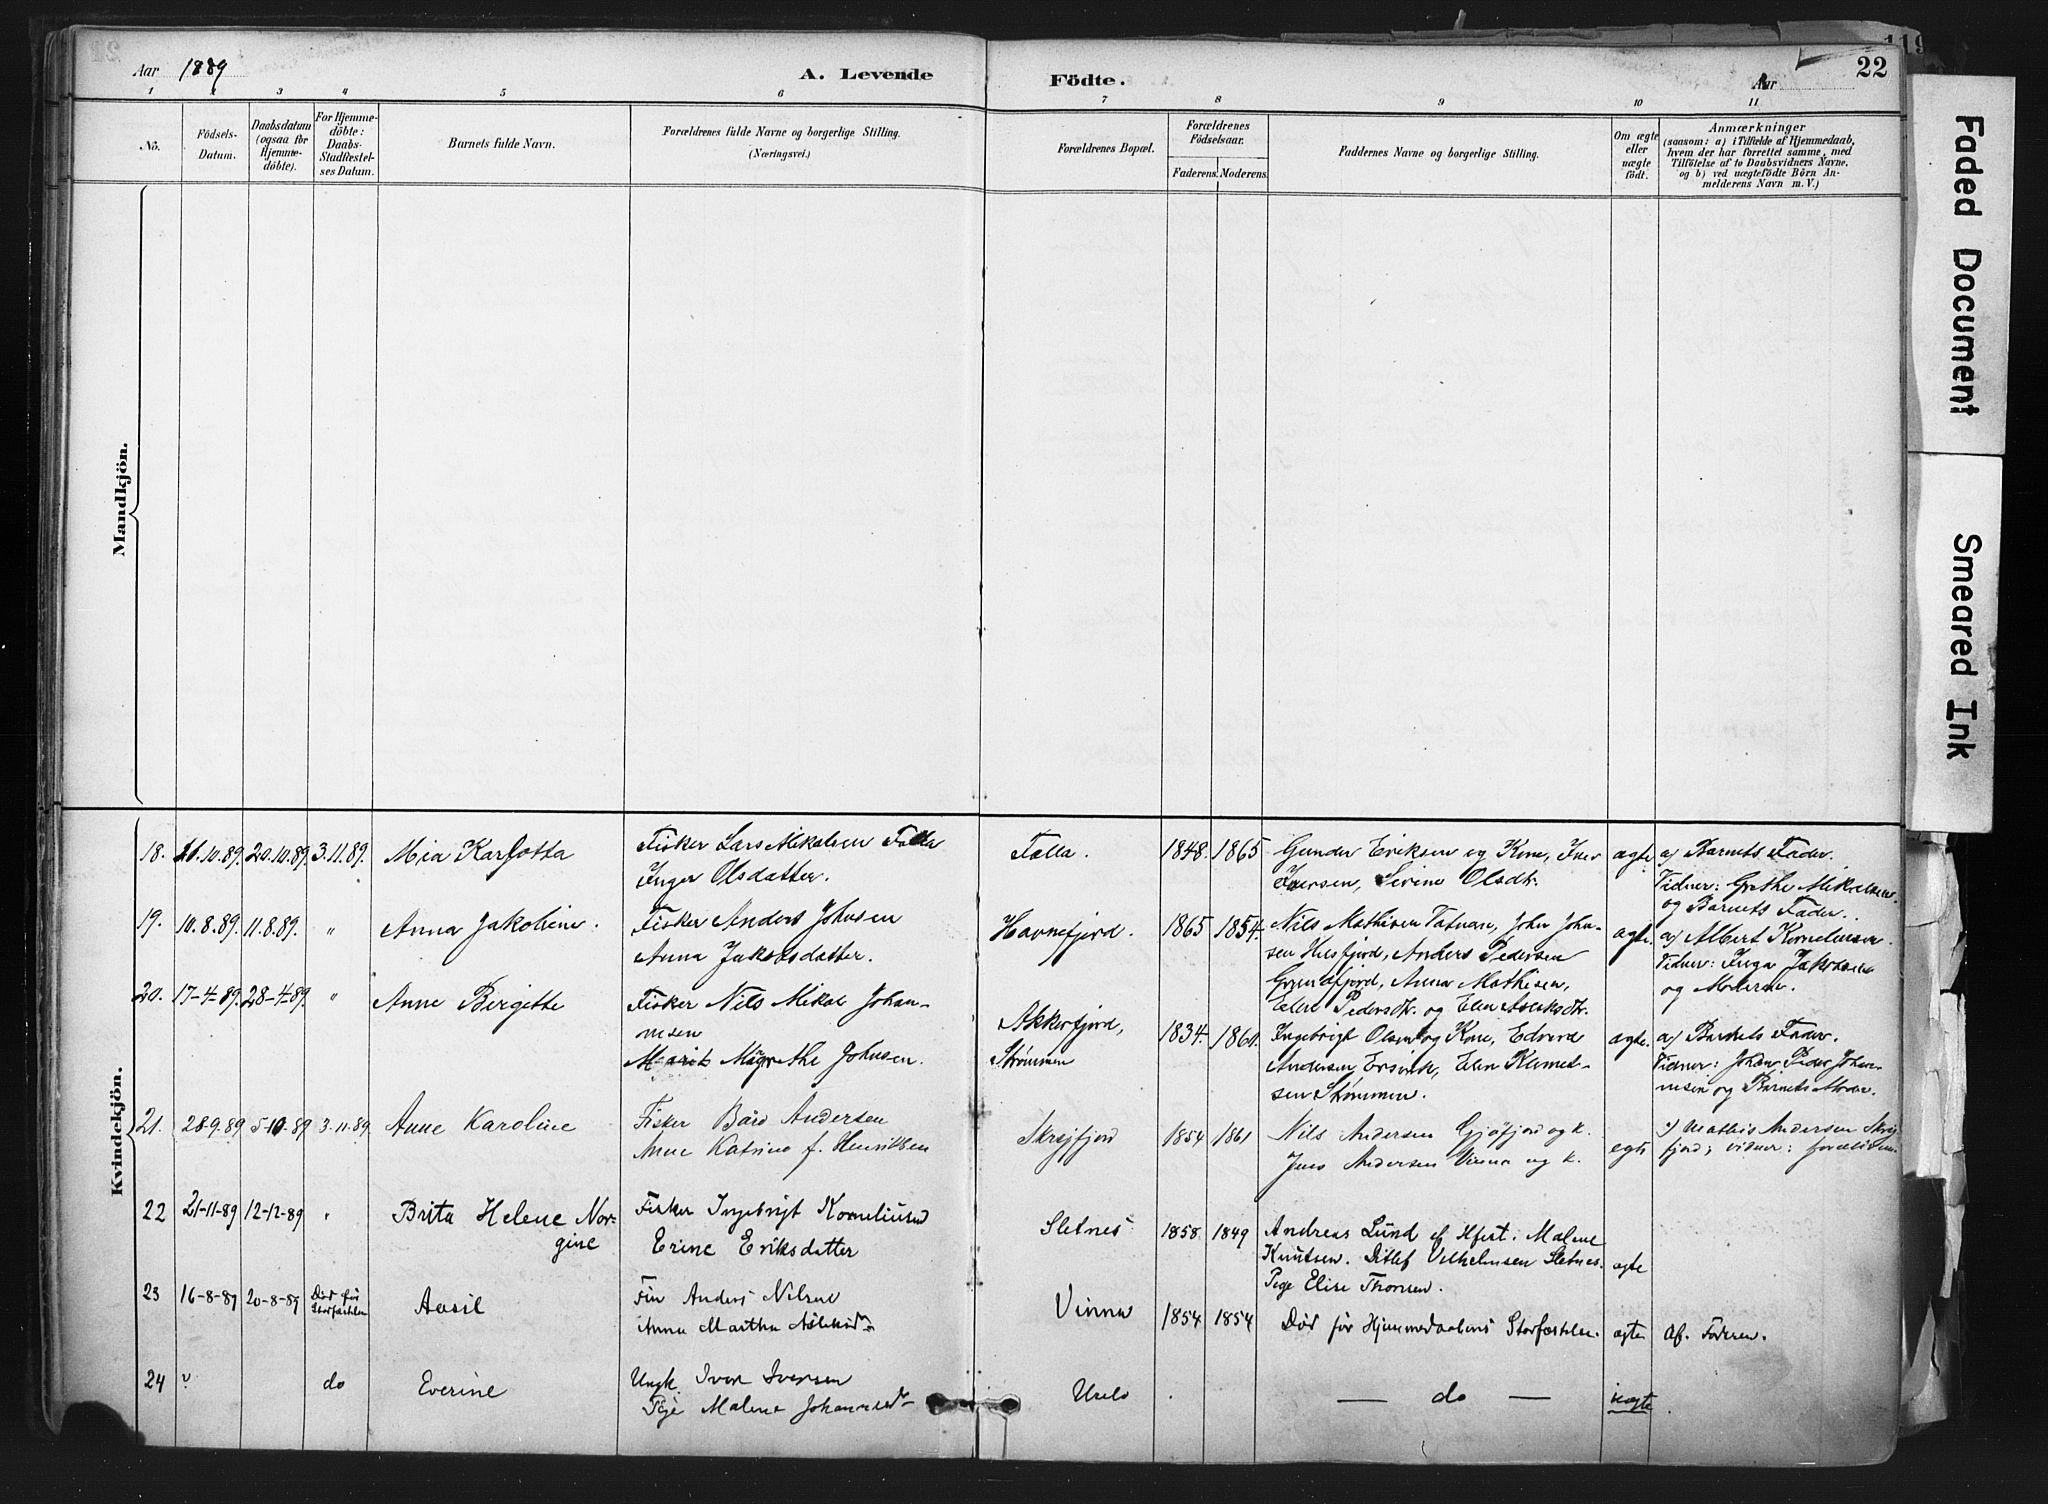 Aar 1889
A. Levende Födte.
Aar
22
1 2 3 4 5 6 7 8 9 10 11
No.
Födsels-Datum.
Daabsdatum (ogsaa for Hjemmedöbte).
For Hjemmedöbte: Daabs-Stadfæstelses Datum.
Barnets fulde Navn.
Forældrenes fulde Navne og borgerlige Stilling.
(Næringsvei.)
Forældrenes Bopæl.
Forældrenes Födselsaar.
Faderens. Moderens.
Faddernes Navne og borgerlige Stilling.
Om ægte eller uægte födt.
Anmærkninger
(saasom: a) i Tilfælde af Hjemmedaab, hvem der har forrettet samme, med Tilföielse af to Daabsvidners Navne, og b) ved uægtefödte Börn Anmelderens Navn m. V.)
Mandkjön.
Kvindekjön.
18. 10.89. 20.10.89. 3.11.89. Mia Karlotta
Fisker Lars Mikalsen
Inger Olsdatter.
1848. 1865
Gunder Eriksen og Kone, Iver
Iversen, Serine Olsdtr.
ægte.
a) Barnets Fader.
Vidner: Grethe Mikalsen
og Barnets Fader.
19. 10.8.89. 11.8.89. " Anna Jakobine.
Fisker Anders Johnsen
Anna Jakobsdatter.
Havnefjord.
1865 1854.
Nils Mathisen Johnsen, Anders Pedersen
Anna Mathisen,
Elen Pedersdtr. og Elen
ægte.
a) Albert Kornelinsen.
Vidner: Inga Jakobsen
og Moderen.
20. 17-4-89. 28-4-89. " Anne Birgitte
Fisker Nils Mikal Johan-
nesen
Marit Magrethe Johnsen.
Akkerfjord,
Strømmen
1834. 1861.
Ingebrigt Olsen og Kone, Edvard
Andersen Ersvik, Elen Klemet-
sen Strømmen.
ægte.
a) Barnets Fader.
Vidner: Johan Peder Johan-
nesen og Barnets Moder.
21. 28-9-89 5-10-89 3-11-89. Anne Karoline
Fisker Baro Andersen
Anne Katrine f. Henriksen
Skrejfjord
1854 1861
Nils Andersen og k.
Jens Andersen Vinna og k.
egte
a) Mathis Andersen
fjord; vidner: forældrene.
22 21-11-89 12-12-89 " Brita Helene Nor-
gine
Fisker Ingebrigt Korneliusen
Erine Eriksdatter
Sletnes
1858. 1849
Andreas Lund af Hfest. Malene
Knutsen. Ditlef Vilhelmsen Sletnes.
Pige Elise Thomsen.
ægte
23 16-8-89 20-8-89 Död för Stadfæstelsen Aasil
Fin Anders Nilsen
Anna Martha
Vinna
1854 1854
Död før Hjemmedaabens Stadfæstelse.
ægte
af. Faderen.
24 do Everine
Ungk. Iver Iversen
Pige Malene
do
uægte
Faded Document
Smeared Ink
119